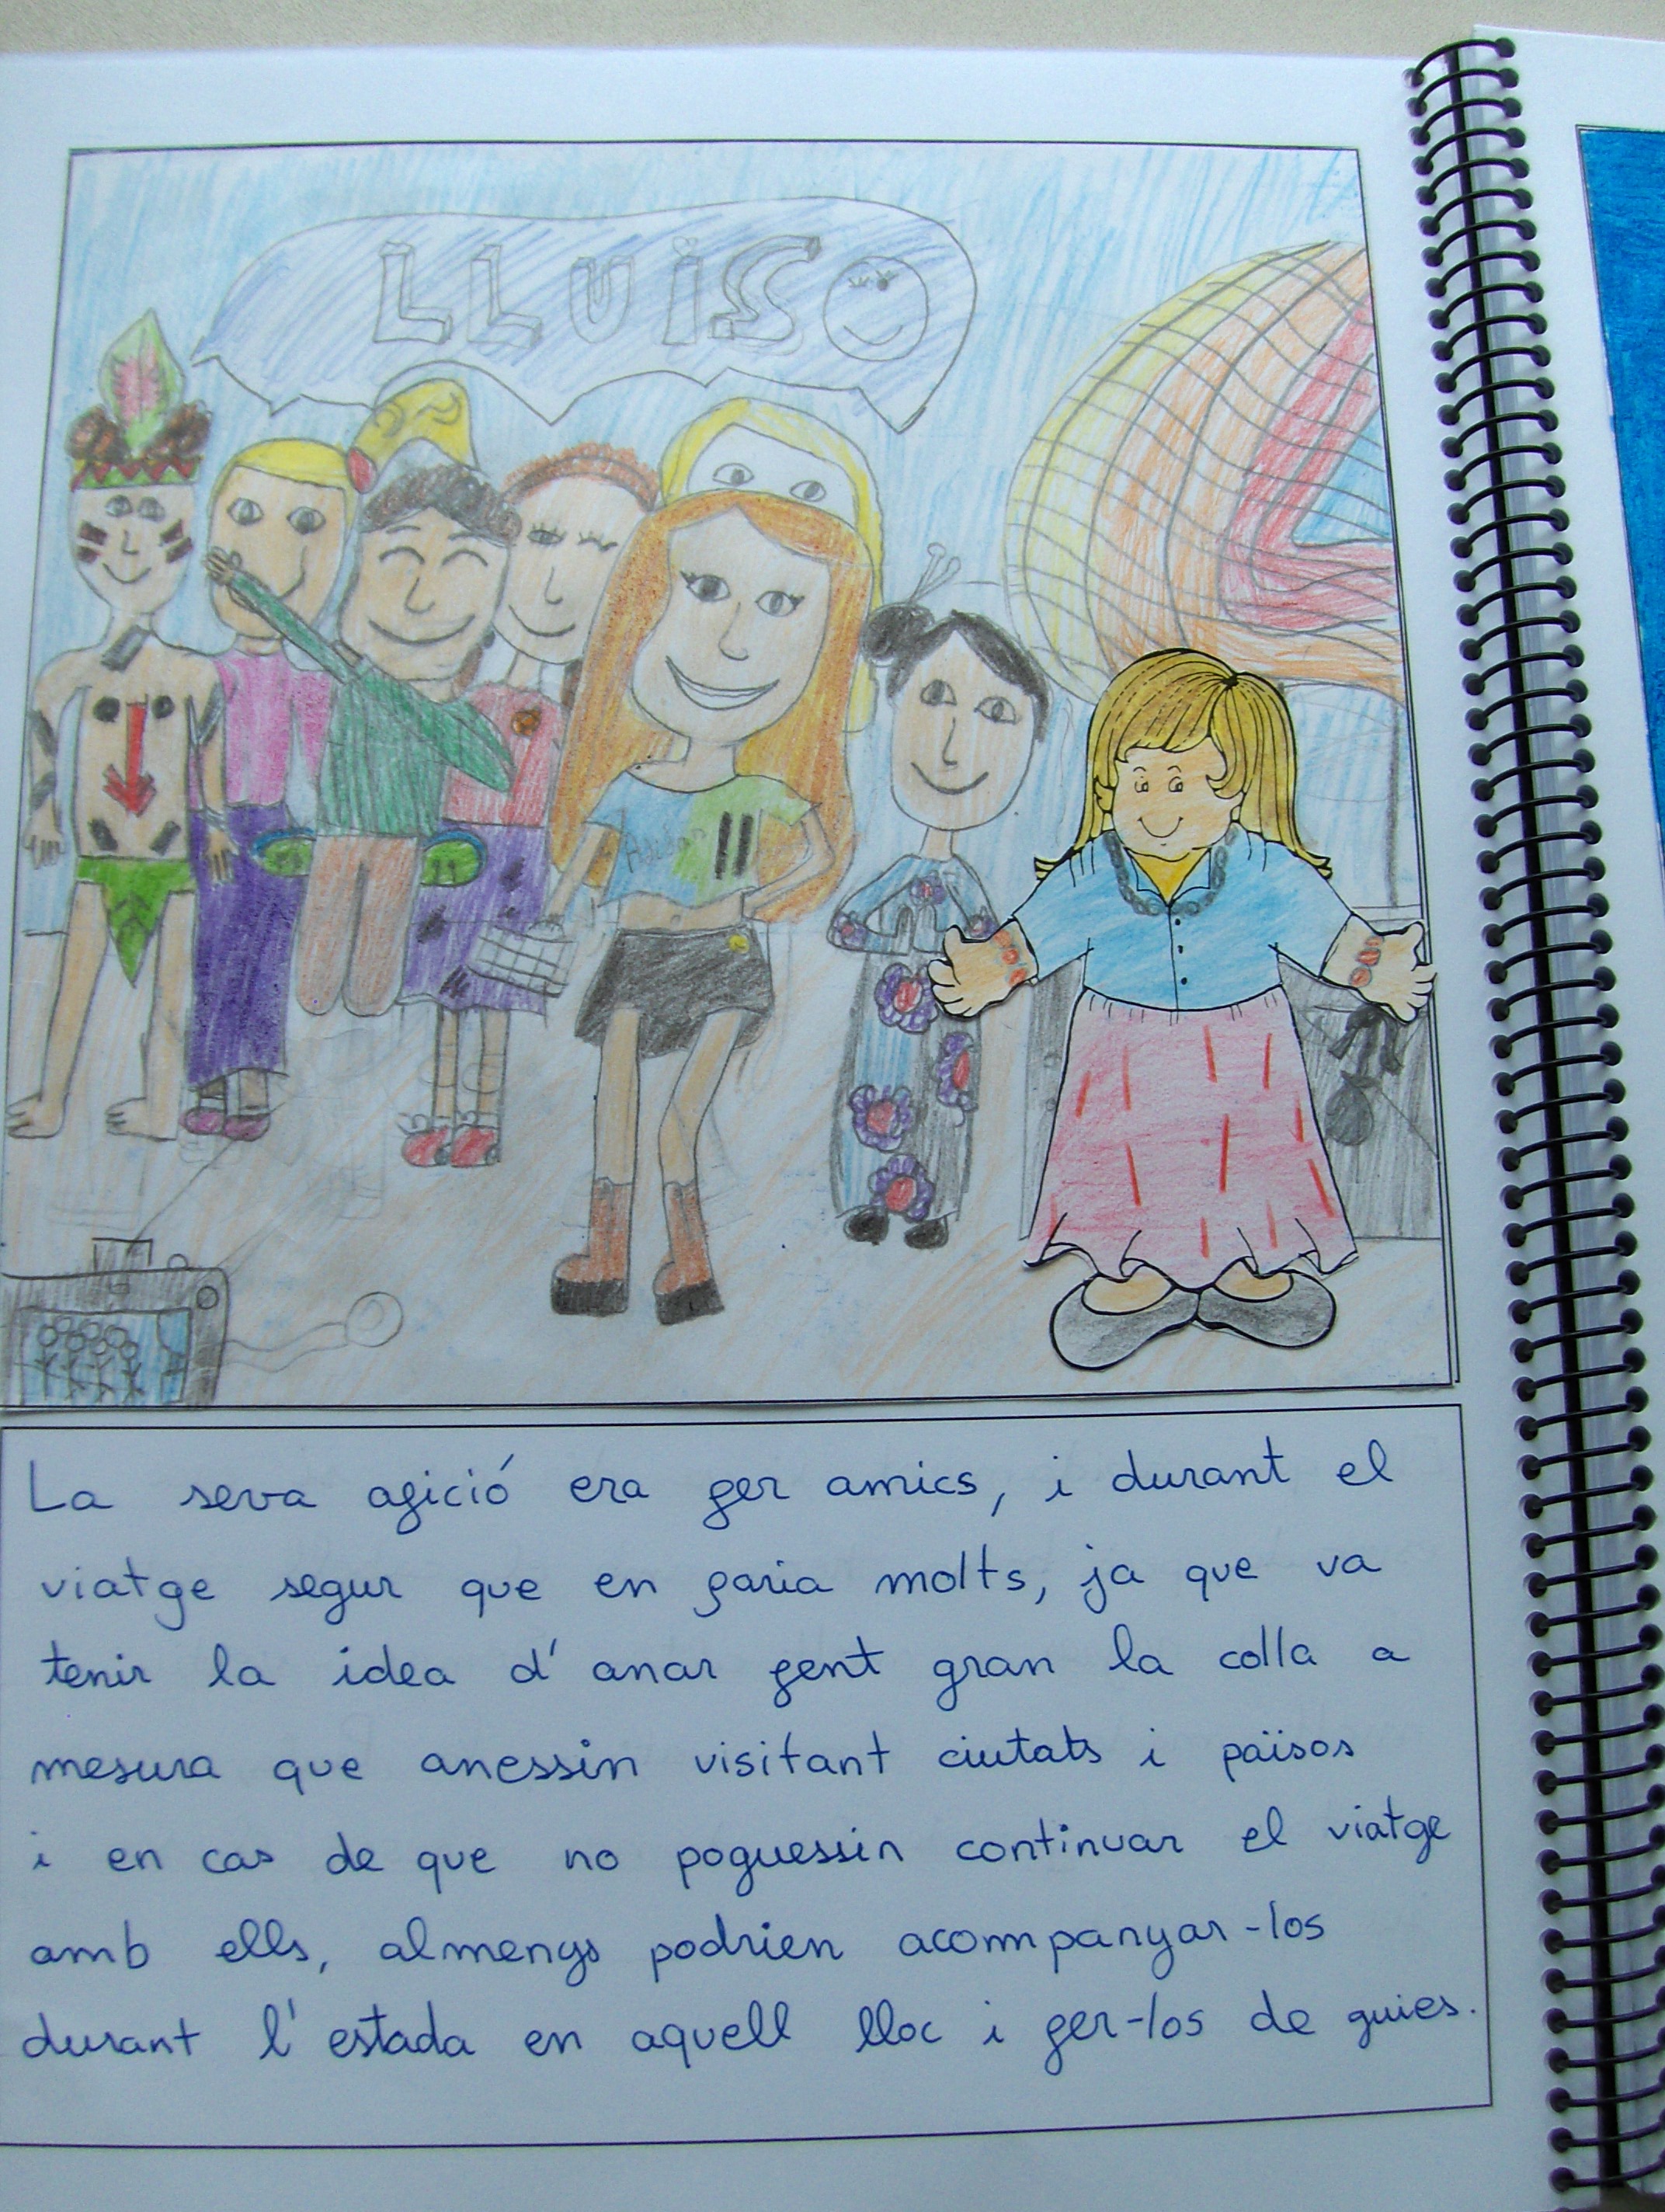 LLUÏSO
La seva afició era fer amics, i durant el
viatge segur que en faria molts, ja que va
tenir la idea d'anar fent gran la colla a
mesura que anessin visitant ciutats i països
i en cas de que no poguessin continuar el viatge
amb ells, almenys podrien acompanyar-los
durant l'estada en aquell lloc i fer-los de guies.